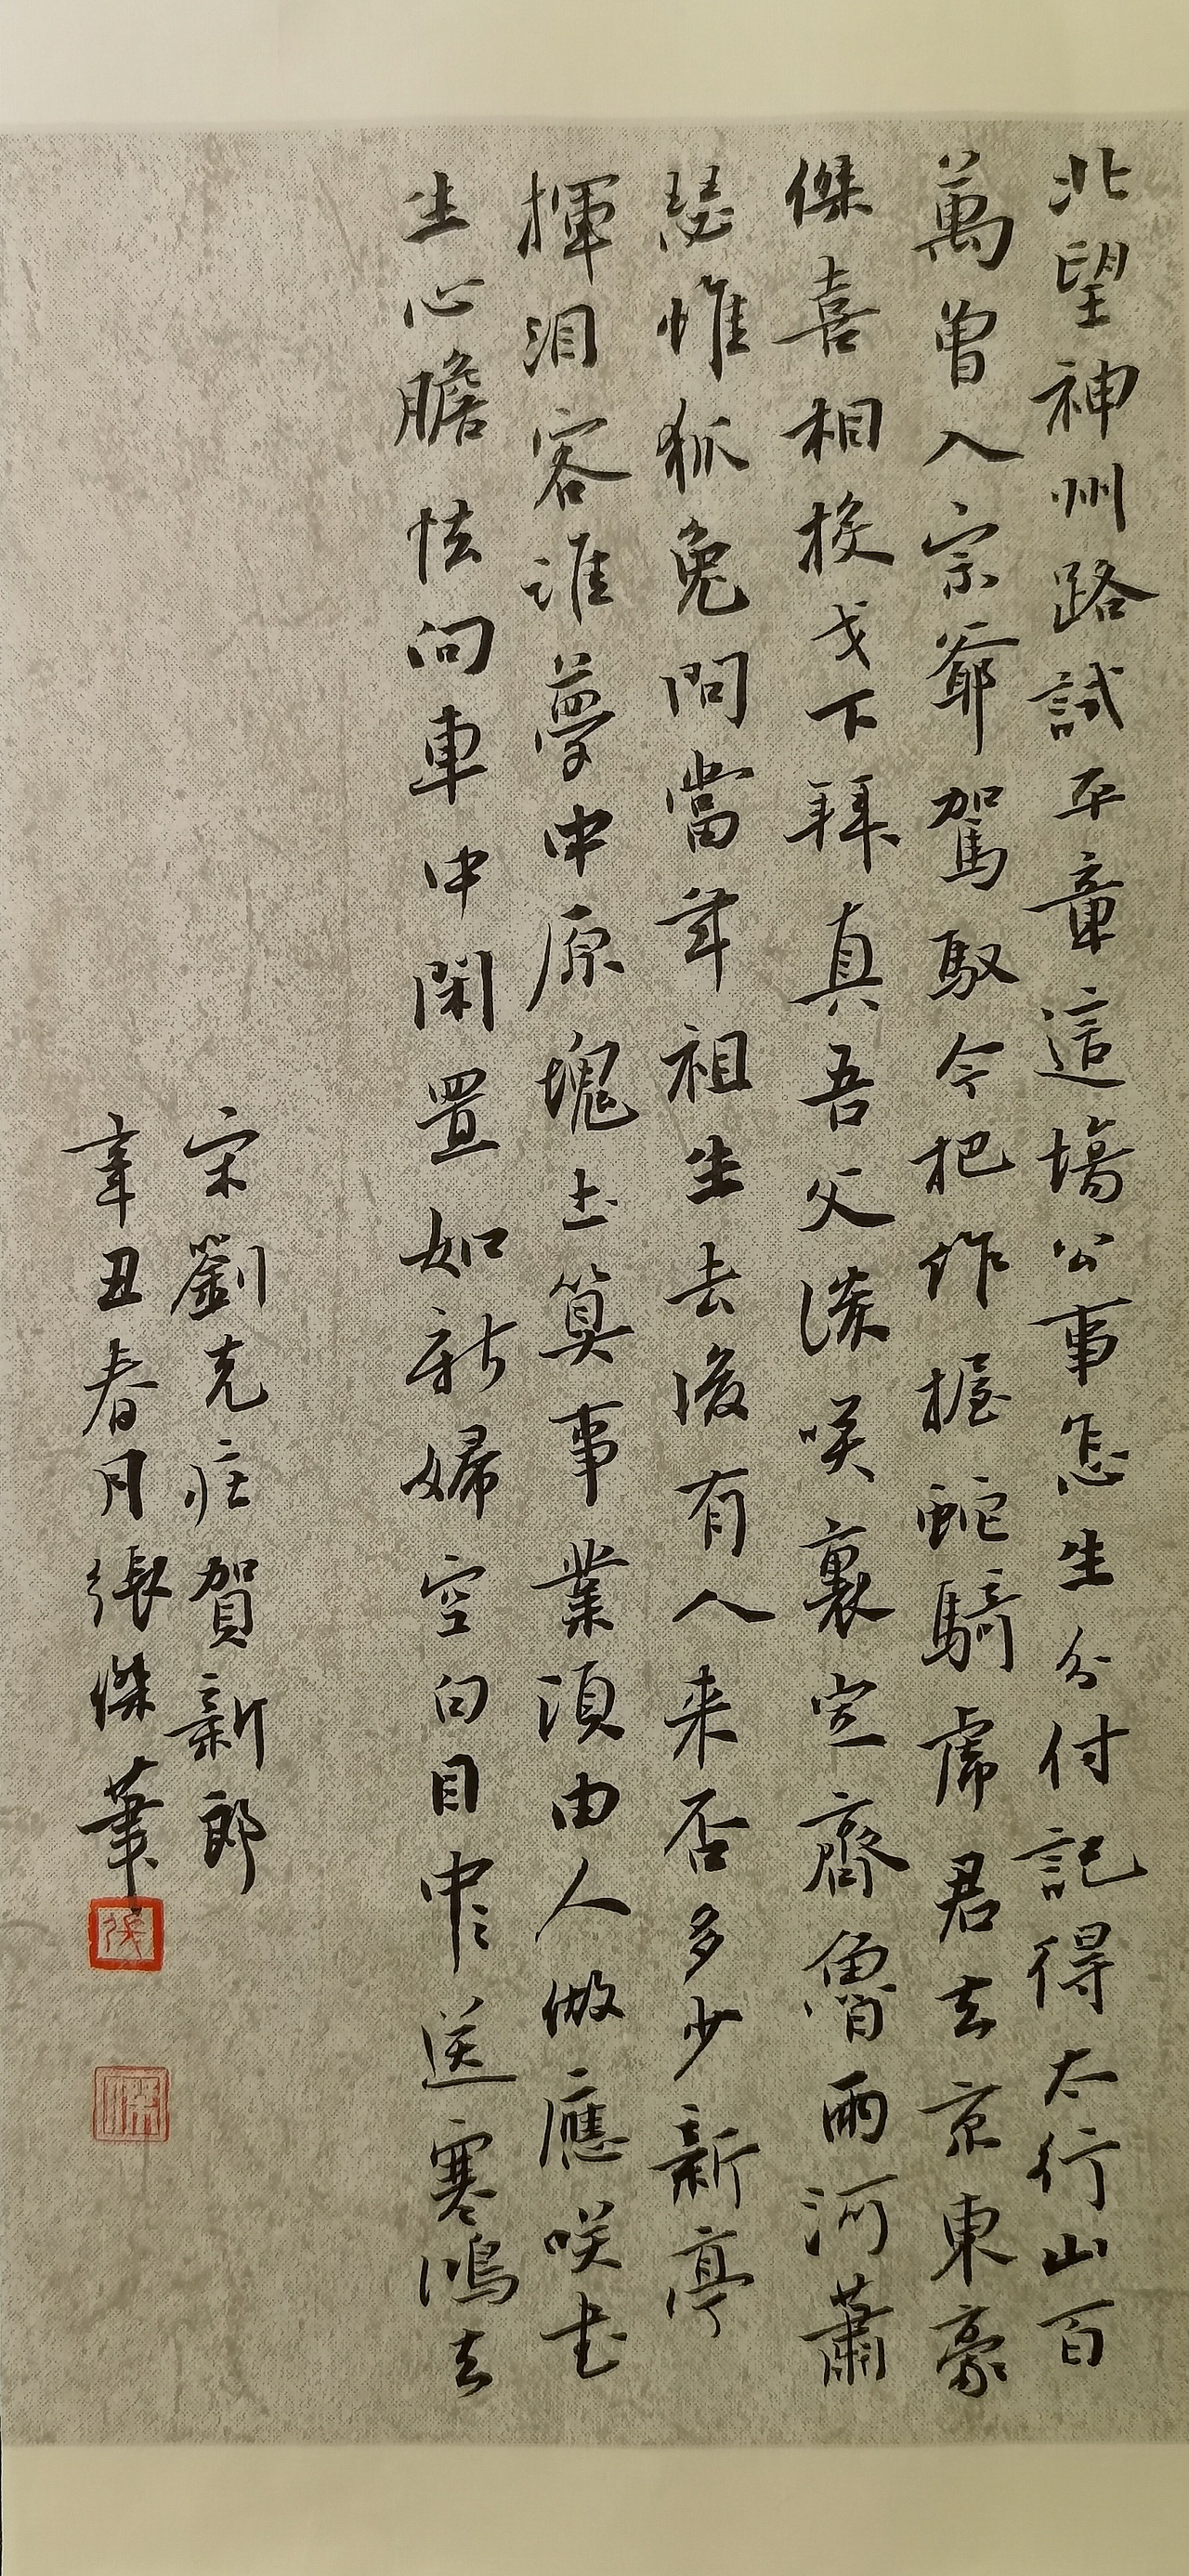 北望神州路試平章這場公事怎生分付記得太行山百
萬曾入宗爺駕馭今把作握蛇騎虎君去京東豪
傑喜相投戈下拜真吾父談咲裏定齊魯兩河蕭
瑟惟狐兔問當年祖生去後有人来否多少新亭
揮泪客誰夢中原塊土算事業須由人做應咲书
生心膽怯向車中閑置如新婦空向目中送寒鴻去
宋劉克莊賀新郎
辛丑春月張傑筆